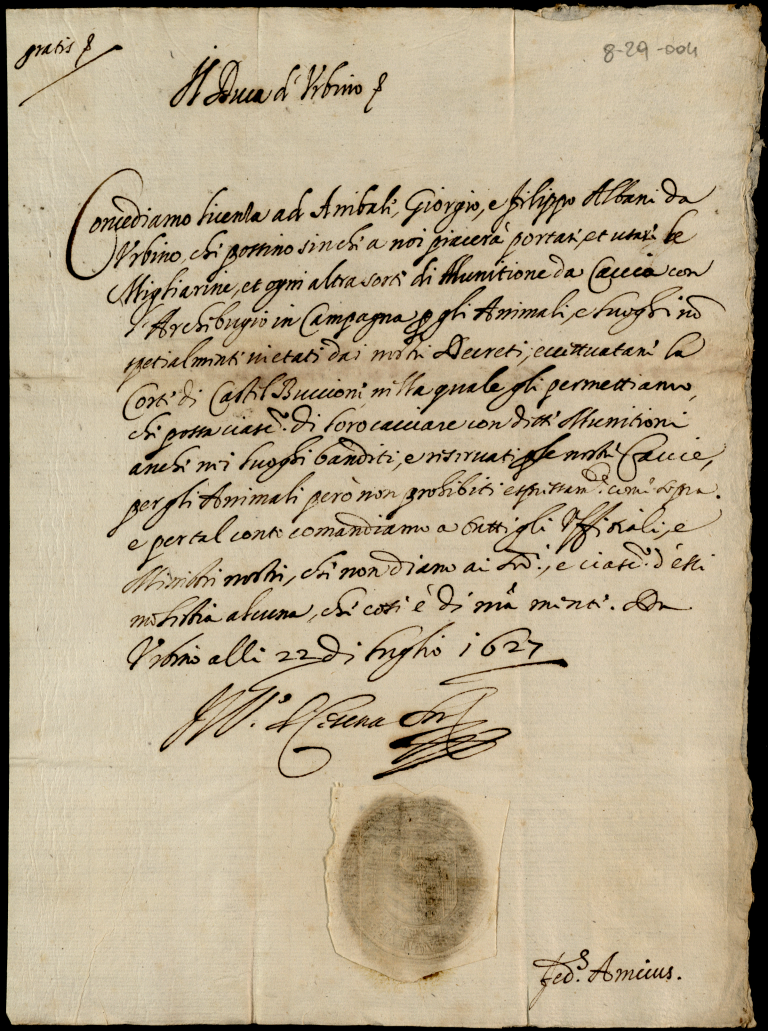 gratis
8-29-004
Il Duca d'Urbino
Concediamo licenza ad Anibale, Giorgio, e Filippo Albani da
Urbino, che possino sin che a noi piacerà portare, et usare le
Migliarine, et ogni altra sorte di Munitione da Caccia con
l'Archibugio in Campagna p gli Animali, e luoghi nõ
spetialmente vietati dai nostri Decreti, eccettuatane la
Corte di Castel Buccione nella quale gli permettiamo,
che possa ciasc.º di loro cacciare con dette Munitioni
anche nei luoghi banditi, e riservati nostre Caccie,
per gli Animali però non prohibiti espressam.te come sopra.
e per tal conto comandiamo a tutti gli Uffitiali, e
Ministri nostri, che non diano ai, e ciasc.º d'essi
molestia alcuna, che cossi è di mã mente. Da
Urbino alli 22 di luglio 1627
Cesena
Fed.s Amicus.